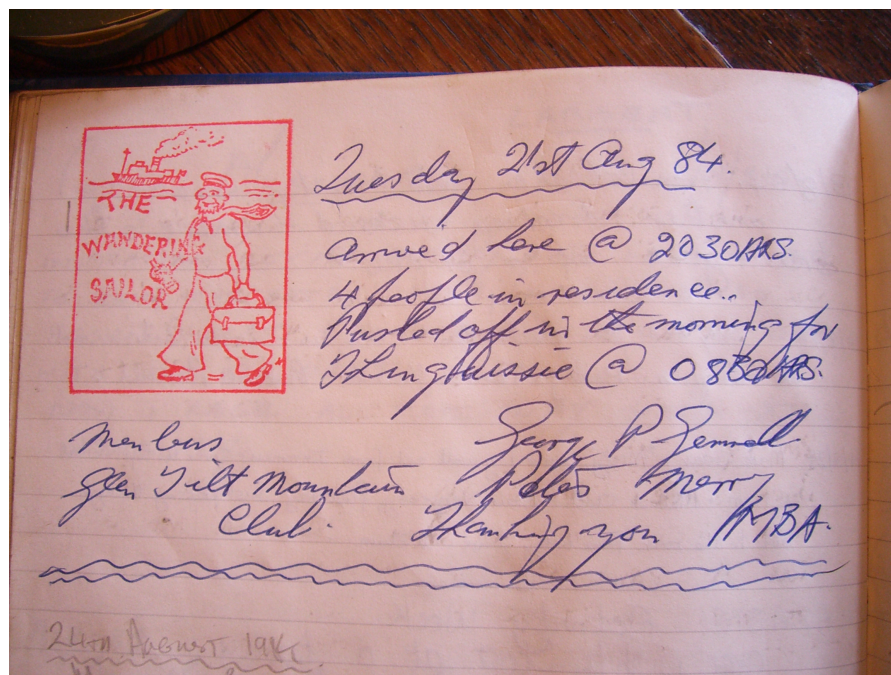 THE
WANDERING
SAILOR
Tuesday 21st Aug 84.
arrived here @ 2030HRS.
4 people in residence..
Pushed off in the morning for
@ 0830HRS.
Members
Glen Tilt Mountain
Club.
George P Gemmell
Peter Merry
Thanking you MBA.
24TH AUGUST 1984